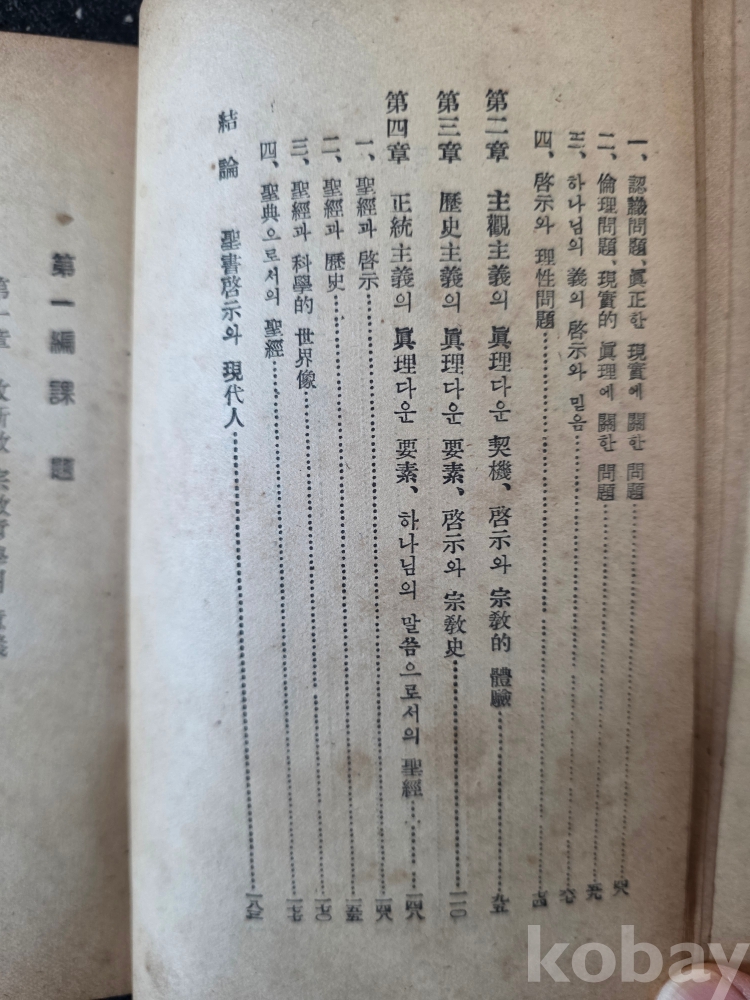 一、認識問題、眞正한 現實에 關한 問題
二、倫理問題、現實的 眞理에 關한 問題
三、하나님의 義의 啓示와 믿음
四、啓示와 理性問題
第二章 主觀主義의 眞理다운 契機、啓示와 宗敎的 體驗 九五
第三章 歷史主義의 眞理다운 要素、啓示와 宗敎史 一一〇
第四章 正統主義의 眞理다운 要素、하나님의 말씀으로서의 聖經 一四八
一、聖經과 啓示 一四八
二、聖經과 歷史 一五五
三、聖經과 科學的 世界像 一七〇
四、聖典으로서의 聖經 一七七
結論 聖書啓示와 現代人
第一編 課題
kobay